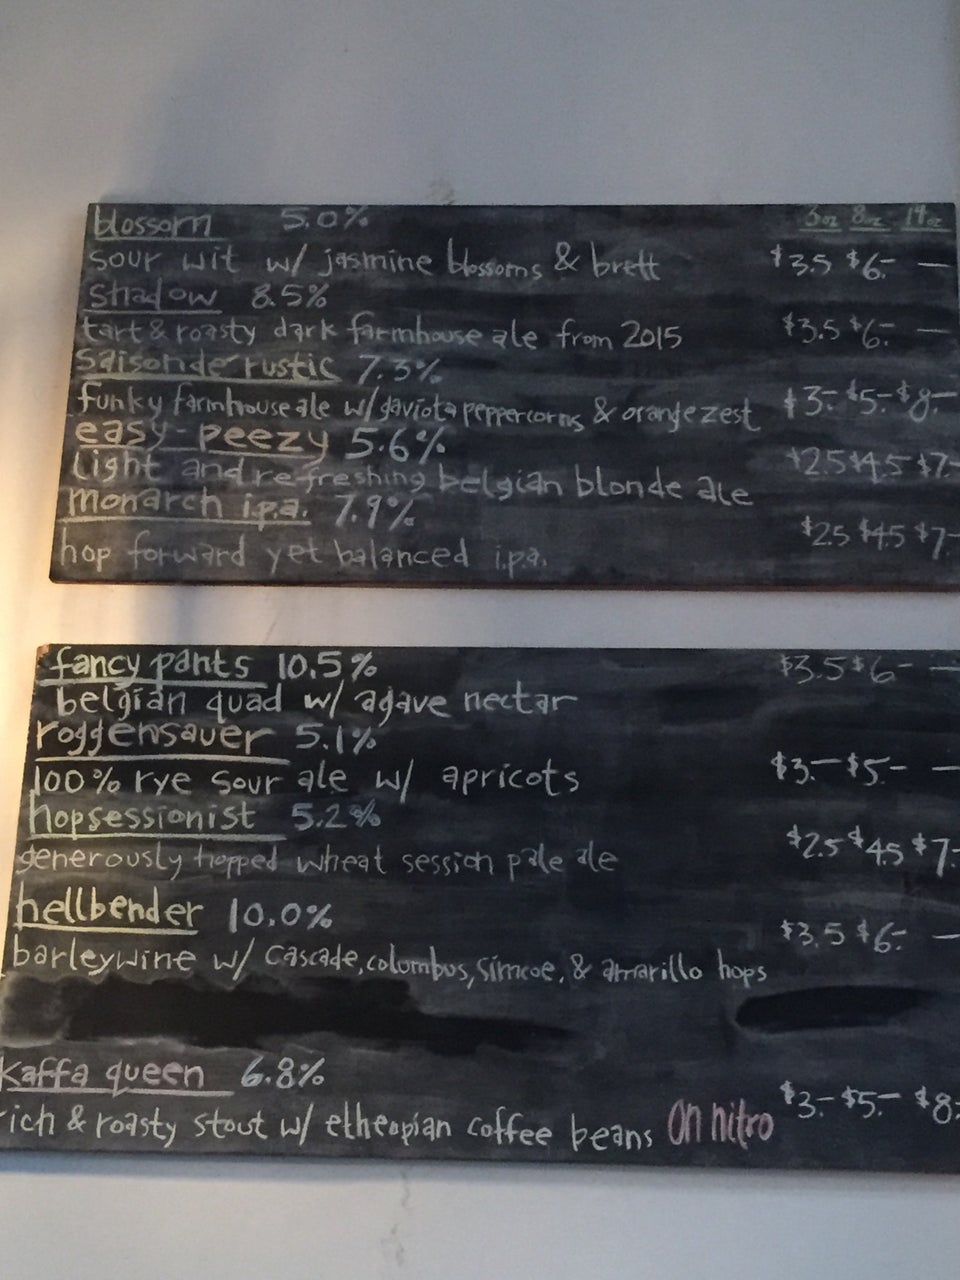 blossom 5.0% 3oz 8oz 14oz
sour wit w/ jasmine blossoms & brett $3.5 $6.- —
shadow 8.5%
tart & roasty dark farmhouse ale from 2015 $3.5 $6.- —
saison de rustic 7.3%
funky farmhouse ale w/ gaviota peppercorns & orange zest $3.- $5.- $8.-
easy-peezy 5.6%
light and refreshing belgian blonde ale $2.5 $4.5 $7.-
monarch i.p.a. 7.9%
hop forward yet balanced i.p.a. $2.5 $4.5 $7.-
fancy pants 10.5% $3.5 $6.- —
belgian quad w/ agave nectar
roggensauer 5.1%
100% rye sour ale w/ apricots $3.- $5.- —
hopsessionist 5.2%
generously hopped wheat session pale ale $2.5 $4.5 $7.-
hellbender 10.0%
barleywine w/ cascade, columbus, simcoe, & amarillo hops $3.5 $6.- —
kaffa queen 6.8%
rich & roasty stout w/ etheopian coffee beans On nitro $3.- $5.- $8.-